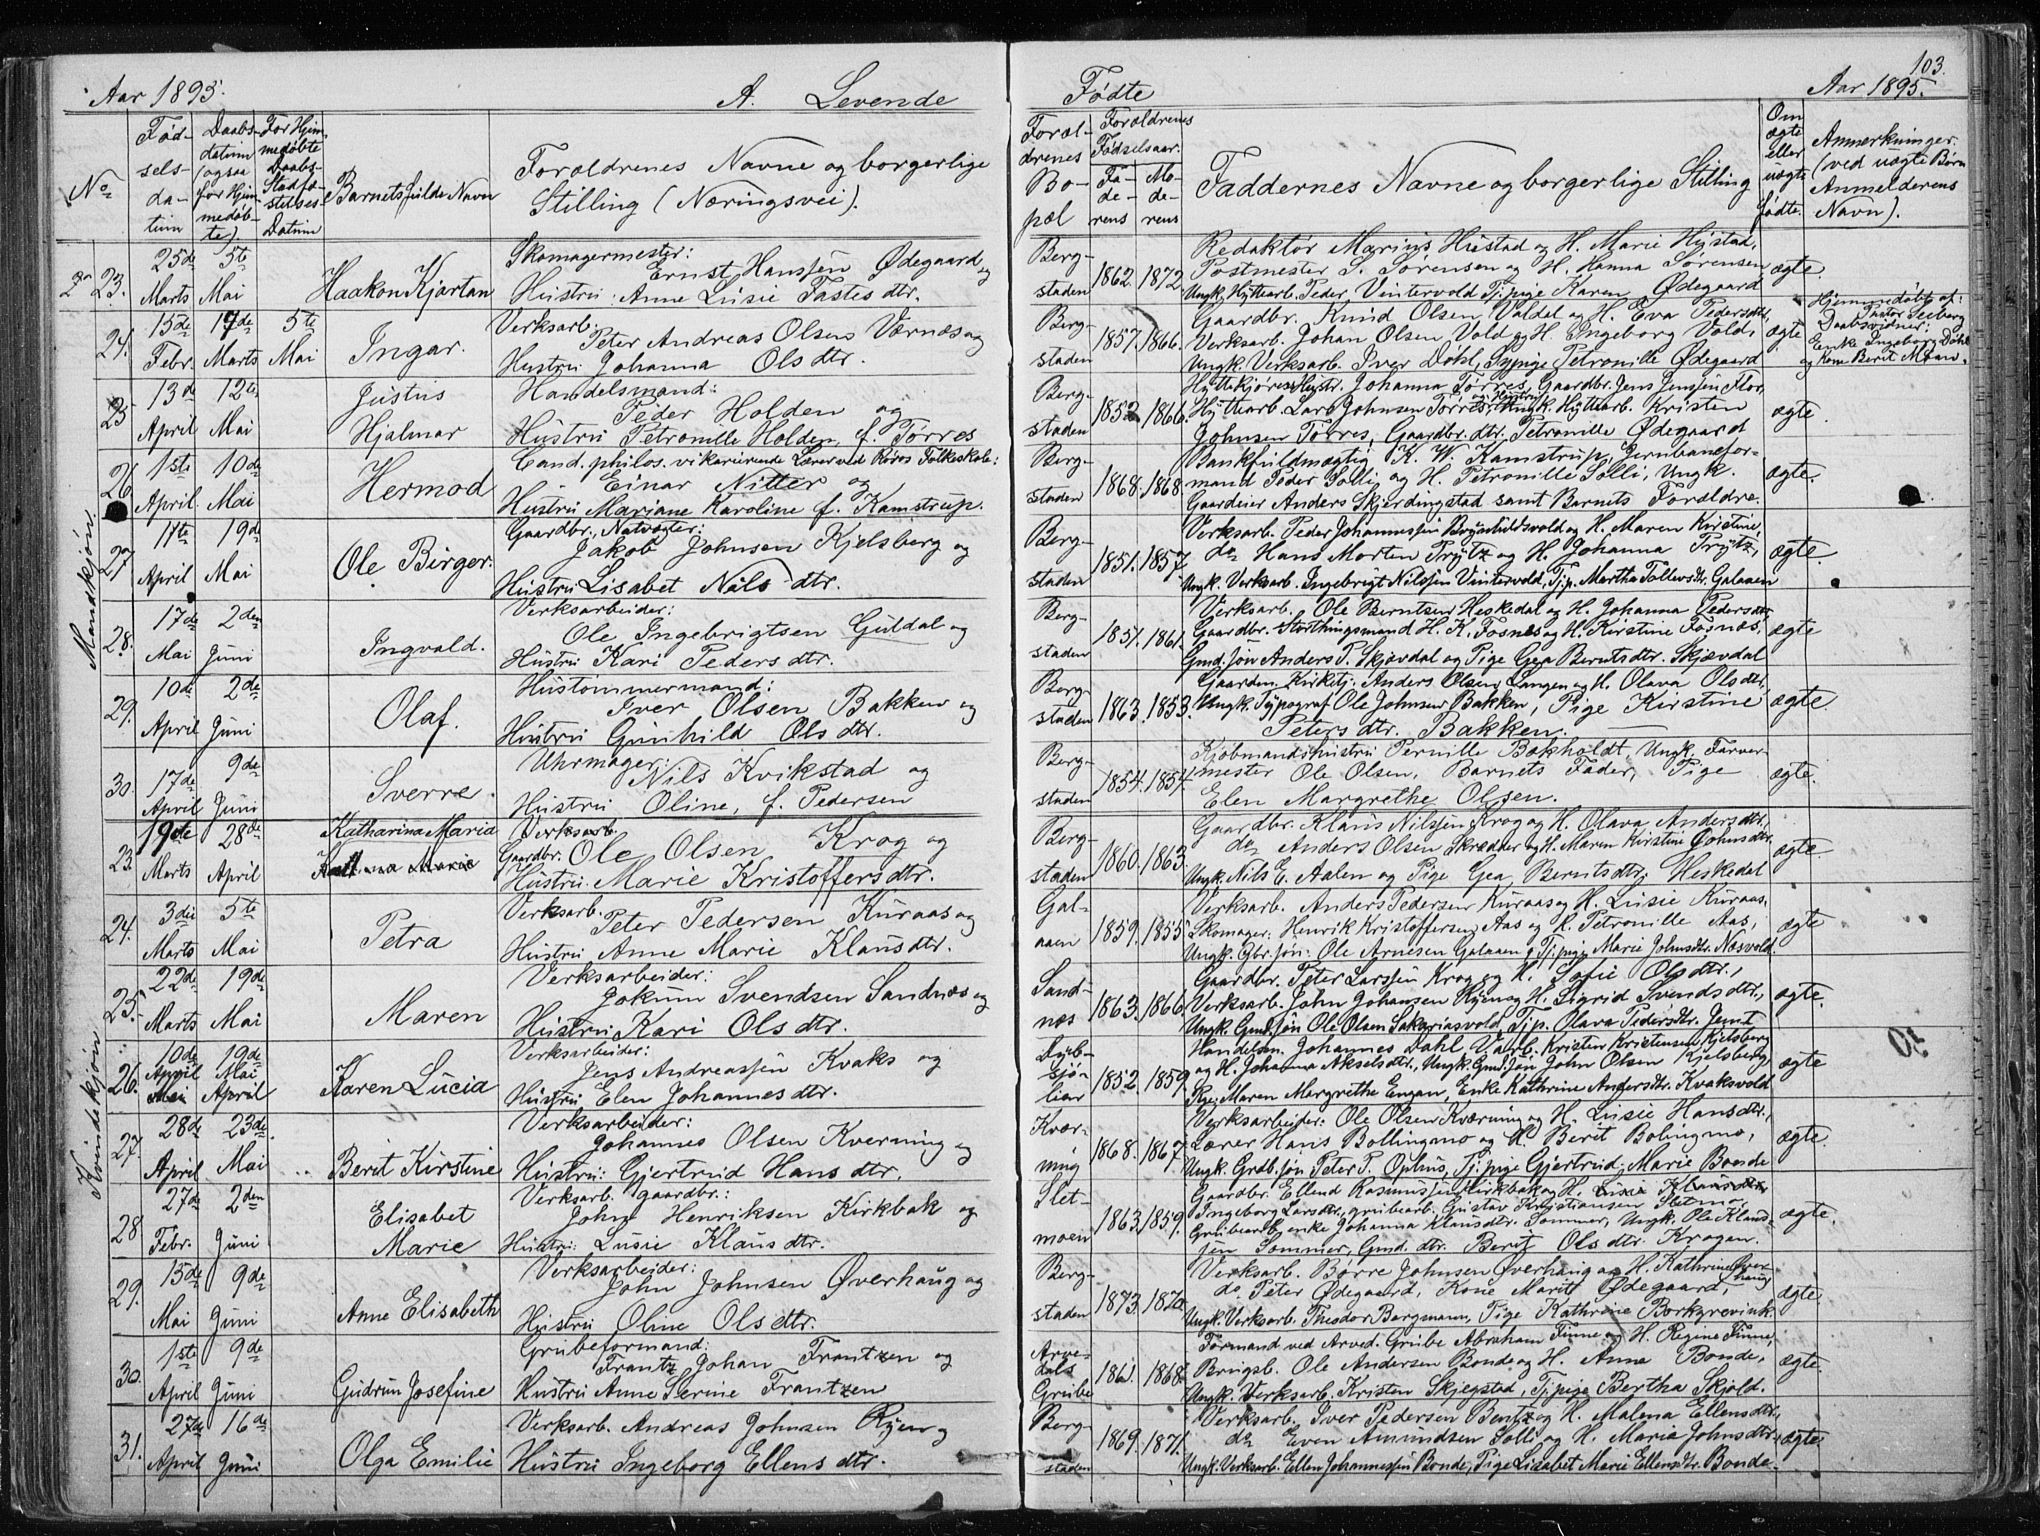 Aar 1895.
A. Levende
Fødte
103.
Aar 1895.
No
Fød-
sels-
da-
tum
Daabs-
datum
(ogsaa
for Hjem
medøb-
te)
For Hjem
medøbte
Daabs-
Stadfæ-
stelses-
Datum
Barnets fulde Navn
Forældrenes Navne og borgerlige
Stilling (Næringsvei).
Foræl-
drenes
Bo-
pæl
Forældrenes
Fødselsaar.
Fa-
de-
rens
Mo-
de-
rens
Faddernes Navne og borgerlige Stilling
Om
ægte
eller
uægte
fødte.
Anmerkninger
(ved uægte Børn
Anmelderens
Navn).
Mandkjøn
23.
25de
Marts
5te
Mai
Haakon Kjartan
Skomagermester:
Ernst Hanssen Ødegaard og
Hustru: Anne Lusie Tastesdtr.
Berg-
staden
1862.
1872
Redaktør Marius Hustad og H. Marie Hustad,
Postmester S. Sørensen og H. Hanna Sørensen
Ungk. Hyttearb. Peder Vintervold Tj. pige Karen Ødegaard
ægte
24.
15de
Febr.
17de
Marts
5te
Mai
Ingar.
Verksarb.
Peter Andreas Olsen Værnæs og
Hustru Johanna Olsdtr.
Berg-
staden
1857.
1866.
Gaardbr. Knud Olsen Valdal og H. Eva Pedersdtr,
Verksarb. Johan Olsen Vold og H. Ingeborg Vold,
Ungk. Verksarb. Iver Döhl, Sypige Petronille Ødegaard
ægte
Hjemmedøbt af
Pastor Seeberg
Daabsvidner:
Enke Ingeborg Döhl
og Kone Berit Moan.
25
13de
April
12te
Mai
Justus
Hjalmar
Handelsmand:
Peder Holden og
Hustru Petronille Holden, f. Tørres
Berg-
staden
1852
1866.
Hyttekjører Hustr. Johanna Tørres, Gaardbr. Jens Jenssen Flor,
Hyttearb. Lars Johnsen Tørres og Hustru Ungk. Hyttearb. Kristen
Johnsen Tørres, Gaardbr. dtr. Petronille Ødegaard
ægte
26
1ste
April
10de
Mai
Hermod
Cand. philos. vikarierende Lærer ved Røros Folkeskole:
Einar Nitter og
Hustru Mariane Karoline f. Kamstrup.
Berg-
staden
1868.
1868
Bankfuldmægtig K. W. Kamstrup, Jernbanefor-
mand Peder Solli og H. Petronille Solli, Ungk.
Gaardeier Anders Skjerdingstad samt Barnets Forældre.
ægte.
27
11te
April
19de
Mai
Ole Birger.
Gaardbr., Natvogter:
Jakob Johnsen Kjelsberg og
Hustru Lisabet Nilsdtr.
Berg-
staden
1851.
1857
Verksarb. Peder Johannessen Brynhildsvold og H. Maren Kirstine,
do Hans Morten Prytz og H. Johanna Prytz,
Ungk. Verksarb. Ingebrigt Nilssen Vintervold, Tj. p. Martha Tollevsdtr. Galaaen
ægte.
28.
17de
Mai
2den
Juni
Ingvald.
Verksarbeider:
Ole Ingebrigtsen Guldal og
Hustru Kari Pedersdtr.
Berg-
staden
1851.
1861.
Verksarb. Ole Berntsen Heskedal og H. Johanna Pedersdtr
Gaardbr. Storthingsmand H. K. Fosnes og H. Kirstine Fosnæs,
Gmd. søn Anders P. Skjævdal og Pige Gea Berntsdtr. Skjævdal
ægte
29.
10de
April
2de
Juni
Olaf.
Hustømmermand:
Iver Olsen Bakken og
Hustru Gunhild Olsdtr.
Berg-
staden
1863.
1853.
Gaarden. Kirketj. Anders Olsen Langen og H. Olava Olsdtr,
Ungk. Typograf Ole Johnsen Bakken, Pige Kirstine
Petersdtr. Bakken.
ægte
30.
17de
April
9de
Juni
Sverre.
Uhrmager:
Nils Kvikstad og
Hustru Oline, f. Pedersen
Berg-
staden
1854.
1854.
Kjøbmandshustru Pernille Bokholdt, Ungk. Farver-
mester Ole Olsen, Barnets Fader, Pige
Elen Margrethe Olsen.
ægte.
Kvindekjøn
23.
19de
Marts
28de
April
Katharina Maria
Verksarb.
Gaardbr. Ole Olsen Krog og
Hustru Marie Kristoffersdtr.
Berg-
staden
1860.
1863.
Gaardbr. Klaus Nilssen Krog og H. Olava Andersdtr,
do Anders Olsen Skrædder og H. Maren Kirstine Johnsdtr.
Ungk. Nils E. Aalen og Pige Gea Berntsdtr. Heskedal
ægte
24.
3die
Marts
5te
Mai
Petra
Verksarb.
Peter Pedersen Kuraas og
Hustru Anne Marie Klausdtr.
Gal-
aaen
1859.
1855
Verksarb. Anders Pedersen Kuraas og H. Lusie Kuraas.
Skomager: Henrik Kristoffersen Aas og H. Petronille Aas,
Ungk. Gbr. søn: Ole Arnesen Galaaen, Tj. pige Marie Johnsdtr. Næsvold
ægte
25.
22de
Marts
19de
Mai
Maren
Verksarbeider:
Jokum Svendsen Sandnæs og
Hustru Kari Olsdtr.
Sand-
næs
1863.
1866.
Gaardbr. Peter Larssen Krog og H. Sofie Olsdtr.,
Verksarb. John Johansen Ryen og H. Sigrid Svendsdtr.,
Ungk. Gmd. søn Ole Olsen Sakariasvold, Tj. p. Olava Pedersdtr. Jemt
ægte.
26.
10de
April
19de
Mai
April
Karen Lucia
Verksarbeider:
Jens Andreassen Kvaks og
Hustru Elen Johannesdtr.
Dyb-
sjø-
lien
1852.
1859.
Handelsm. Johannes Dahl, Vaarb. Kristen Kristensen Kjelsberg
og H. Johanna Akselsdtr., Ungk. Gmd. søn John Olsen Kjelsberg,
Pige Maren Margrethe Engan, Enke Kathrine Andersdtr. Kvaksvold
ægte
27.
28de
April
23de.
Mai
Berit Kirstine
Verksarbeider:
Johannes Olsen Kverning og
Hustru: Gjertrud Hansdtr.
Kvær-
ning
1868.
1867.
Verksarbeider: Ole Olsen Kværning og H. Lusie Hansdtr.,
Lærer Hans Bollingmo og H. Berit Bolingmo,
Ungk. Grdb. søn Peter P. Ophus, Tj. pige Gjertrud Marie Bonde
ægte.
28
27de
Febr.
2den
Juni
Elisabet
Marie
Verksarb. gaardbr.:
John Henriksen Kirkbak og
Hustru: Lusie Klausdtr.
Slet-
moen
1863.
1859.
Gaardbr. Ellend Rasmussen Kirkbak og H. Lusie Klausdtr,
Ingeborg Larsdtr, grubearb. Gustav Kristiansen Sletmo,
Grubearb. enke Johanna Klausdtr. Sommer, Ungk. Ole Klaus-
sen Sommer, Gmd. dtr. Berit Olsdtr. Krogan.
ægte.
29.
15de
Mai
9de
Juni
Anne Elisabeth
Verksarbeider:
John Johnsen Øverhaug og
Hustru Oline Olsdtr.
Berg-
staden
1873.
1870
Verksarb. Børre Johnsen Øverhaug og H. Kathrine Øver-
haug
do. Peter Ødegaard, Kone Marit Ødegaard,
Ungk. Verksarb. Theodor Bergmann, Pige Kathrine Borkgrevink.
ægte
30.
1ste
April
9de
Juni
Gudrun Josefine
Grubeformand:
Frantz Johan Frantzen og
Hustru Anne Serine Frantzen
Arve-
dals
Grube
1861.
1868
Formand ved Arved. Grube Abraham Finne og H. Regine Finne,
Brugsb. Ole Andersen Bonde og H. Anne Bonde,
Ungk. Verksarb. Kristen Skjegstad, Tj. pige Bertha Skjold.
ægte.
31.
27de
April
16de
Juni
Olga Emilie
Verksarb. Andreas Johnsen Ryen og
Hustru Ingeborg Ellensdtr.
Berg-
staden
1869.
1871.
Verksarb. Iver Pedersen Bentz og H. Malena Ellensdtr,
do Even Amundsen Solli og H. Maria Johnsdtr,
Ungk. Verksarb. Ellen Johannessen Bonde, Pige Lisabet Marie Ellensdtr. Bonde
ægte.